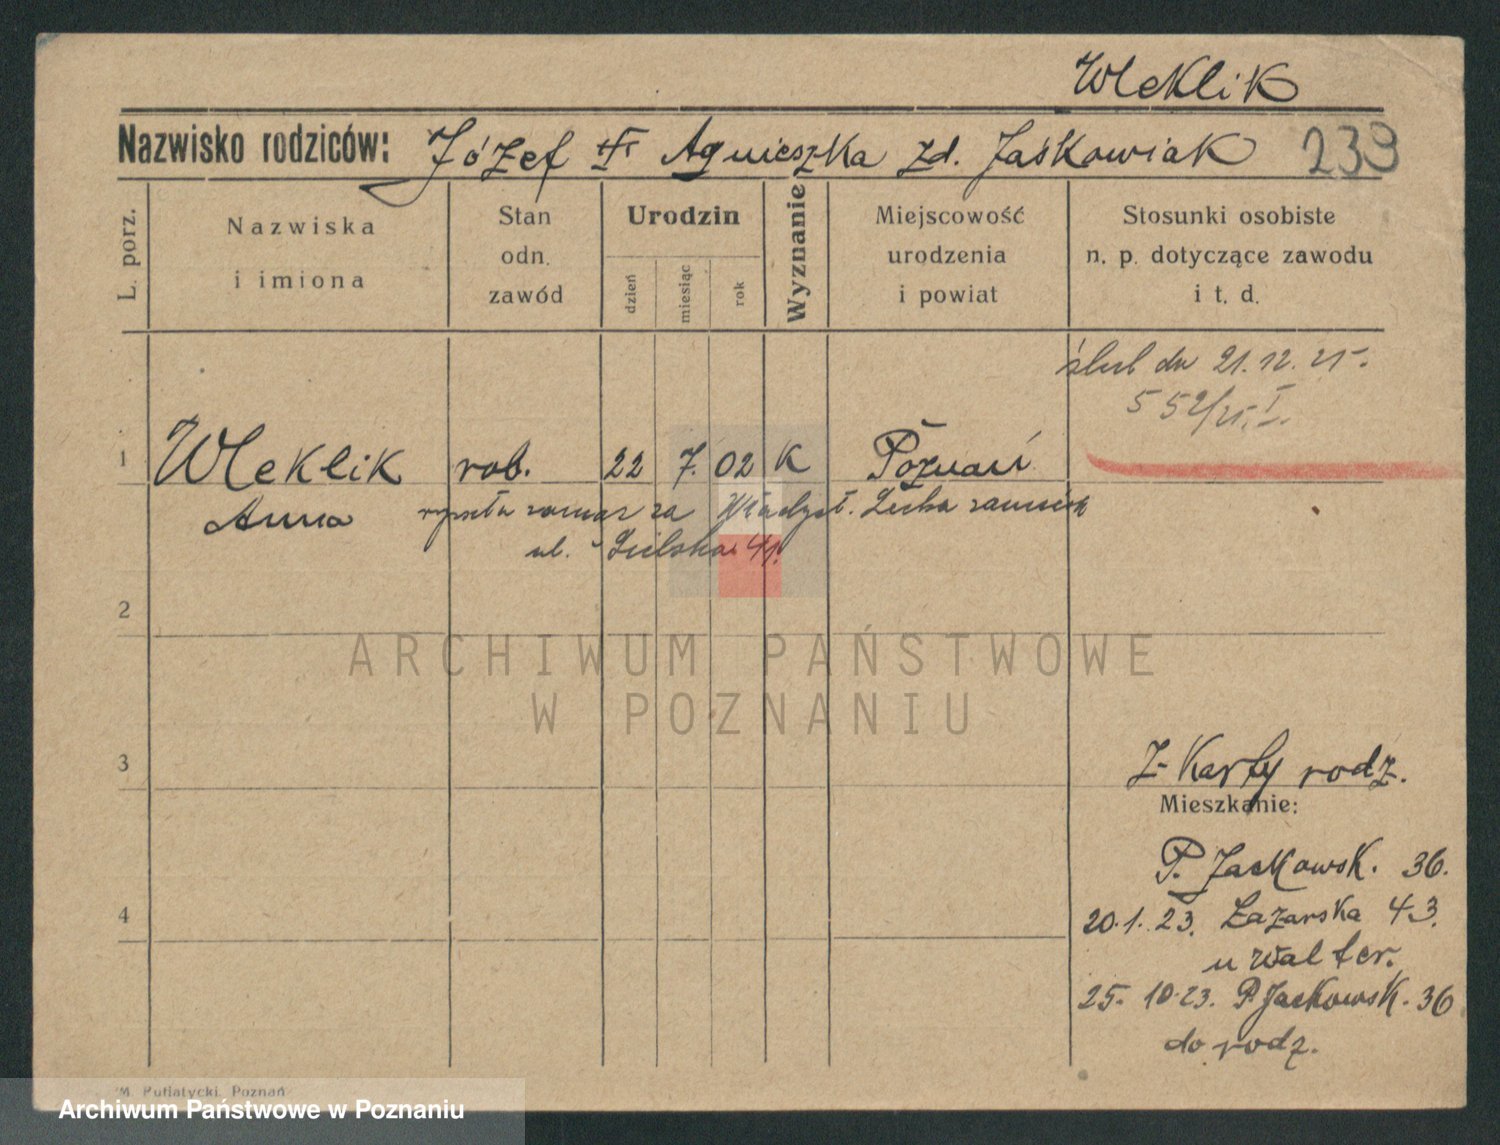 Weklik
Nazwisko rodziców: Józef Agnieszka zd. Jaśkowiak 239
L. porz.
Nazwiska
i imiona
Stan
odn.
zawód
Urodzin
dzień
miesiąc
rok
Wyznanie
Miejscowość
urodzenia
i powiat
Stosunki osobiste
n. p. dotyczące zawodu
i t. d.
ślub dn 21.12.25.
552/25. I.
1 Weklik rob. 22 7. 02 K Poznań
Anna
wyszła za Władysł. Lecha
ul. 41.
2
ARCHIWUM PAŃSTWOWE
W POZNANIU
3
Z Karty rodz.
Mieszkanie:
P. Jackowsk. 36.
4
20.1.23. Łazarska 43.
u Walter.
25.10.23. P. Jackowsk. 36
do rodz.
M. Putiatycki, Poznań
Archiwum Państwowe w Poznaniu